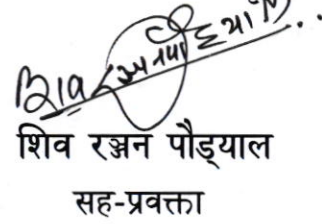 शिव रञ्जन पौड्याल
सह-प्रवक्ता